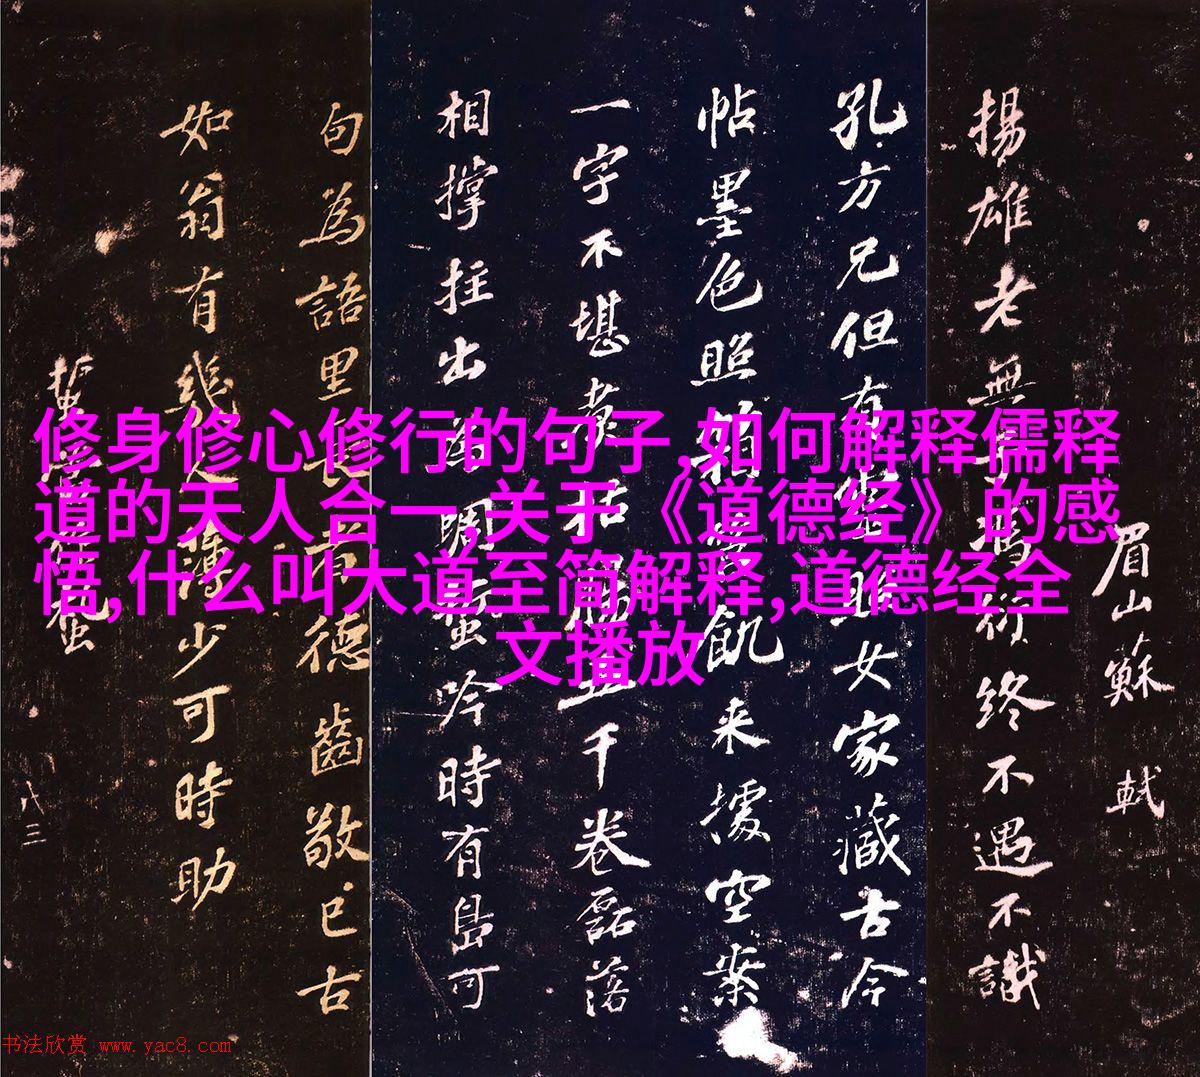 眉山蘇軾
揚雄老無馮衍終不遇不識
孔方兄但有照女家藏古今
帖墨色照箱飢来據空案
一字不堪煮枯五千卷磊落
相撑拄出蛩吟時有島可
句為語里長德齒敬已古
如翁有幾人薄少可時助
八三
修身修心修行的句子,如何解释儒释
道的天人合一,关于《道德经》的感
悟,什么叫大道至简解释,道德经全
文播放
书法欣赏 www.yac8.com